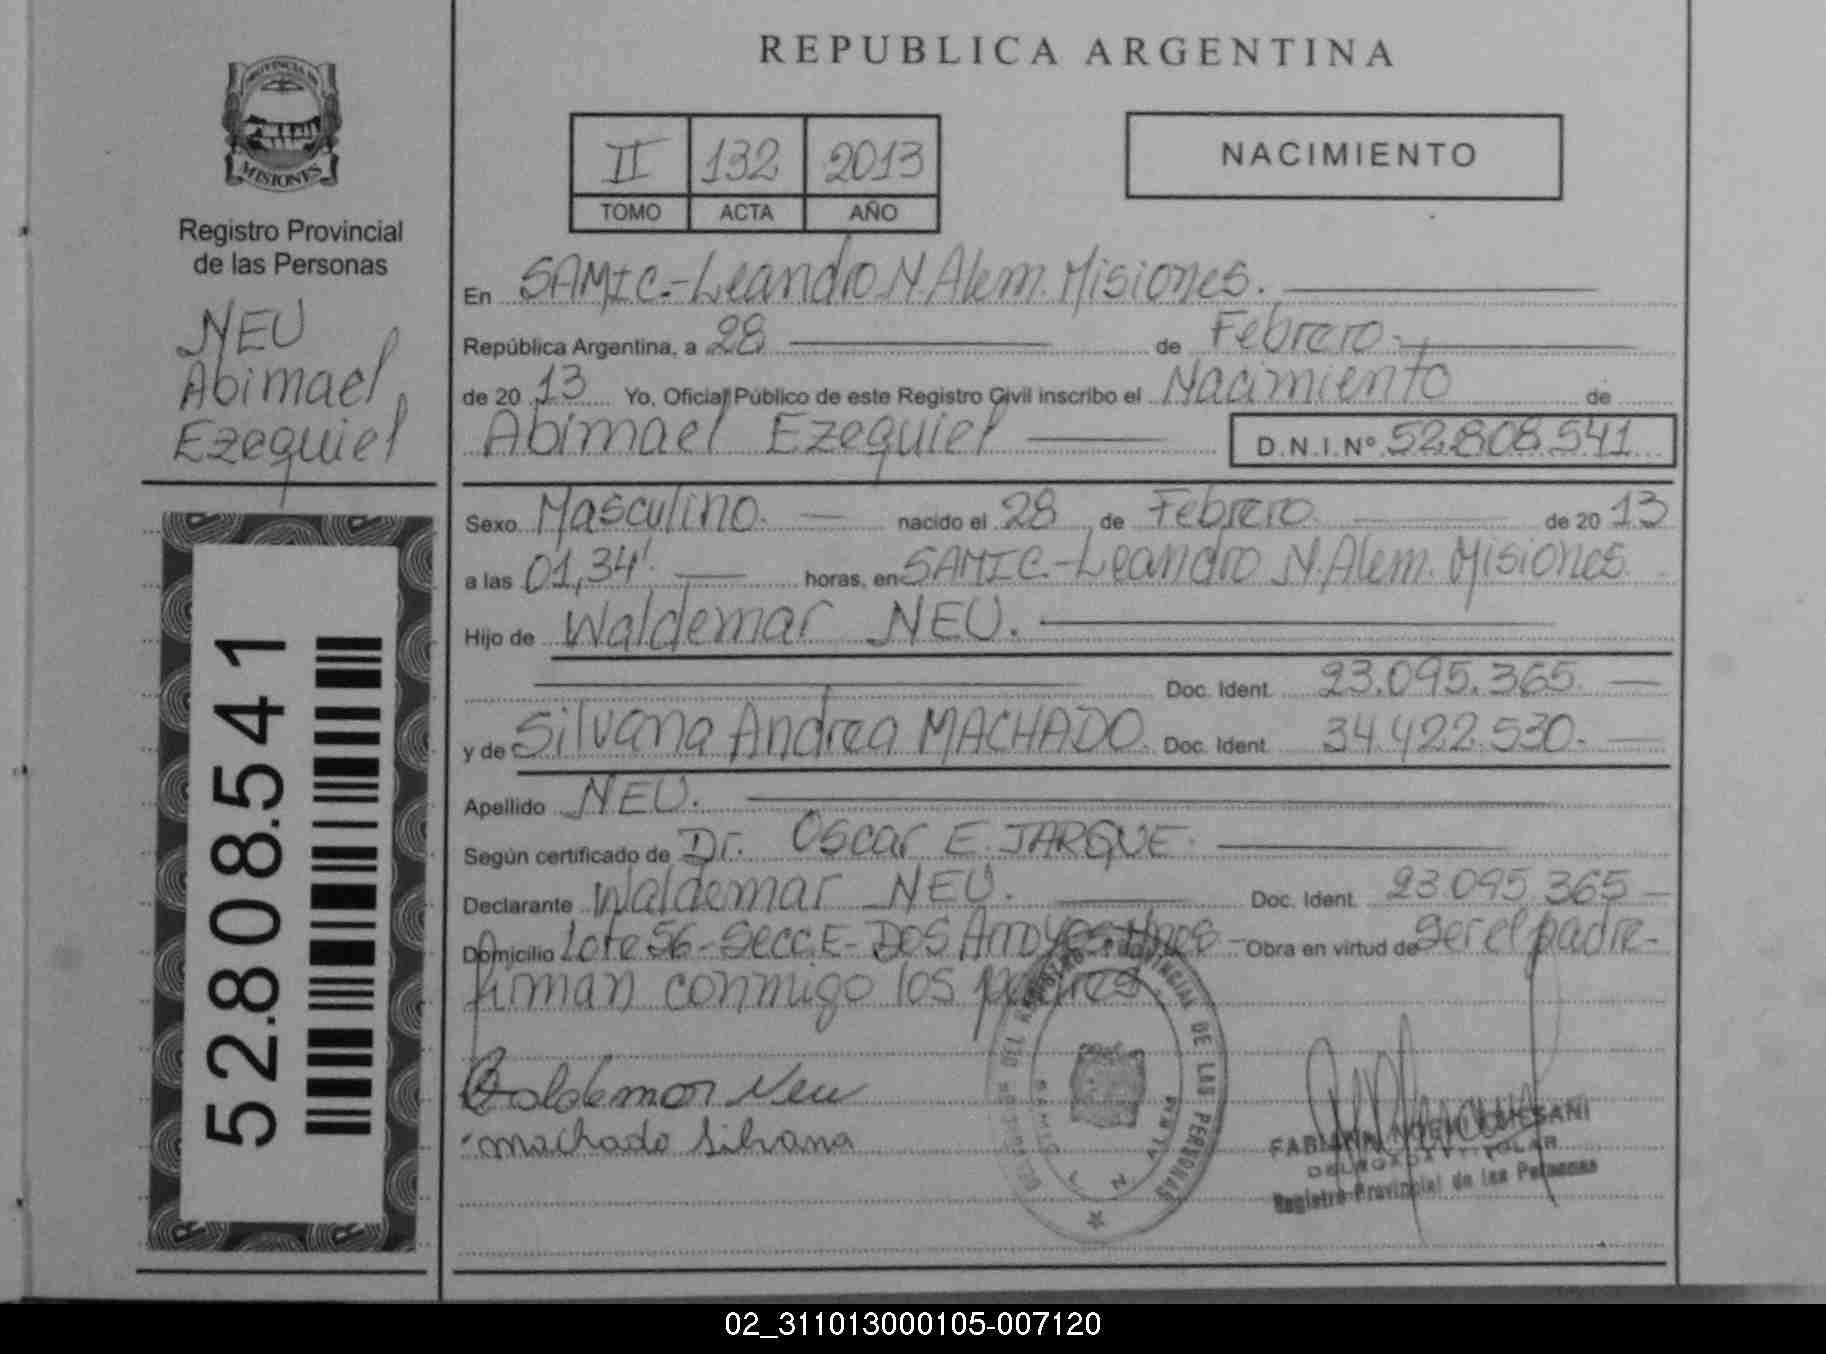 PROVINCIA DE
MISIONES
Registro Provincial
de las Personas
NEU
Abimael
Ezequiel
52.808.541
REPUBLICA ARGENTINA
II 132 2013
TOMO ACTA AÑO
NACIMIENTO
En SAMIC.-Leandro N. Alem. Misiones.
República Argentina, a 28 de Febrero.
de 20 13 Yo, Oficial Público de este Registro Civil inscribo el Nacimiento de
Abimael Ezequiel D.N.I.Nº 52.808.541
Sexo Masculino. nacido el 28 de Febrero. de 20 13
a las 01,34'. horas, en SAMIC.-Leandro N. Alem. Misiones.
Hijo de Waldemar NEU.
Doc. Ident. 23.095.365.
y de Silvana Andrea MACHADO. Doc. Ident. 34.422.530.
Apellido NEU.
Según certificado de Dr. Oscar E. JARQUE.
Declarante Waldemar NEU. Doc. Ident. 23.095.365
Domicilio Lote 56-Secc.E-DOS Arroyos Obra en virtud de ser el padre-
firman conmigo los padres.
Waldemar Neu
machado Silvana
PROVINCIAL DE LAS PERSONAS
DELEGADA TITULAR
Registro Provincial de las Personas
02_311013000105-007120